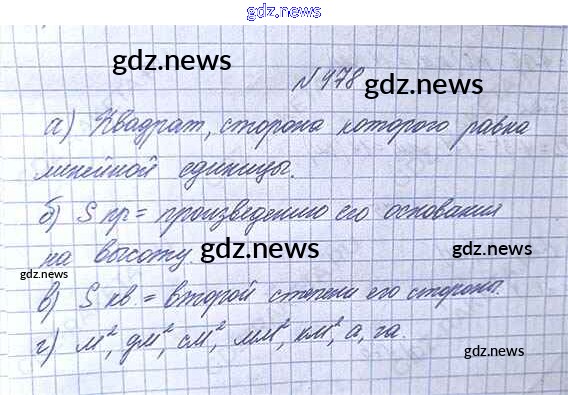 gdz.news
gdz.news
N 478 gdz.news
а) Квадрат, сторона которого равна
линейной единицы.
б) S пр = произведению его основания
на высоту. gdz.news gdz.news
gdz.news
в) S кв = второй степени его стороны.
г) м², дм², см², мм², км², а, га.
gdz.news